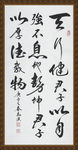 天行健君子以自
強不息地勢坤君子
以厚德載物